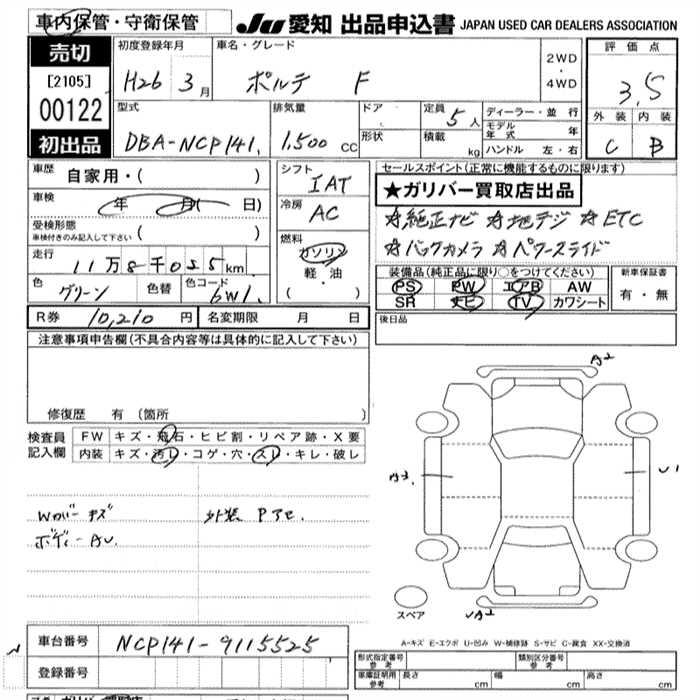 車内保管・守衛保管
JU 愛知 出品申込書 JAPAN USED CAR DEALERS ASSOCIATION
売切
[2105]
00122
初出品
初度登録年月 車名・グレード 2WD・4WD 評価点
H26 3月 ポルテ F 3.5
型式 排気量 ドア 定員 5人 ディーラー・並行 外装 内装
DBA-NCP141. 1,500cc 形状 積載 kg モデル年式 年 C B
ハンドル 左・右
車歴 自家用・( )
車検 年 月( 日)
受検形態 ( )
車検付きのみ記入して下さい
走行 11万8千025km
色 グリーン 色替 色コード 6W1.
シフト IAT
冷房 AC
燃料 ガソリン
軽・油
(・)
セールスポイント(正常に機能するものに限ります)
★ガリバー買取店出品
☆純正ナビ ☆地デジ ☆ETC
☆バックカメラ ☆パワースライド
装備品(純正品に限り○をつけてください) 新車保証書
PS PW エアB AW 有・無
SR ナビ TV カワシート
R券 10,210円 名変期限 月 日
後日品
注意事項申告欄(不具合内容等は具体的に記入して下さい)
修復歴 有 (箇所 )
検査員記入欄 FW キズ・飛石・ヒビ割・リペア跡・X要
内装 キズ・汚レ・コゲ・穴・スレ・キレ・破レ
Wカバーキズ 外装 Pアセ.
ボディーAU.
A2
A3
U1
UA2
スペア
A-キズ E-エクボ U-凹み W-補修跡 S-サビ C-腐食 XX-交換済
車台番号 NCP141-9115525
登録番号
形式指定番号 参考 類別区分番号 参考
車庫証明用 参考 長さ cm 幅 cm 高さ cm